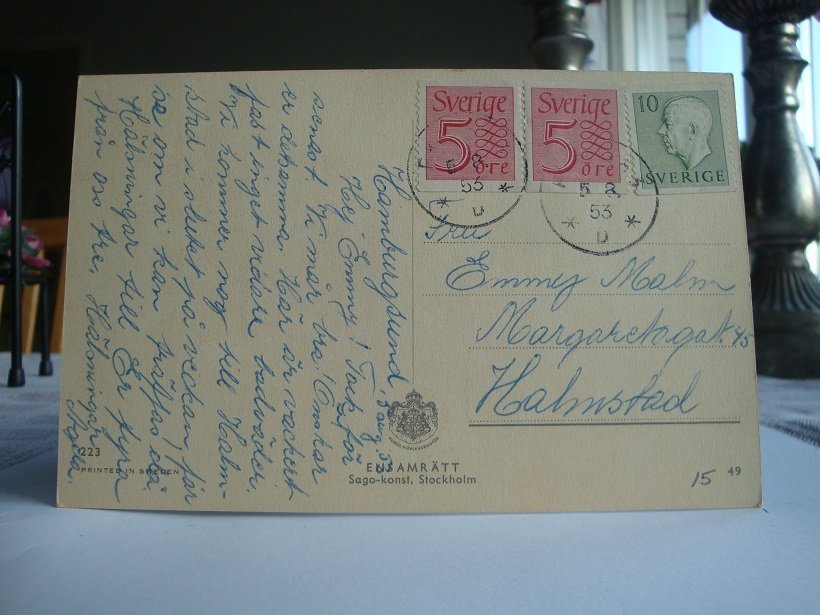 Hamburgsund
Hej Emmy! Tack för
senast. Vi mår bra! Önskar
er detsamma. Här är vackert
fast inget vidare badväder.
Vi kommer nog till Halm-
stad i slutet på veckan, får
se om vi kan träffas då.
Hälsningar till Er fyra
från oss tre, Hälsningar
Sverige
5
öre
Sverige
5
öre
10
SVERIGE
5 8
53
* D *
5 8
53
* D *
Fru
Emmy Malm
Margaretagat. 45
Halmstad
ENSAMRÄTT
Sago-konst, Stockholm
223
PRINTED IN SWEDEN
15
49